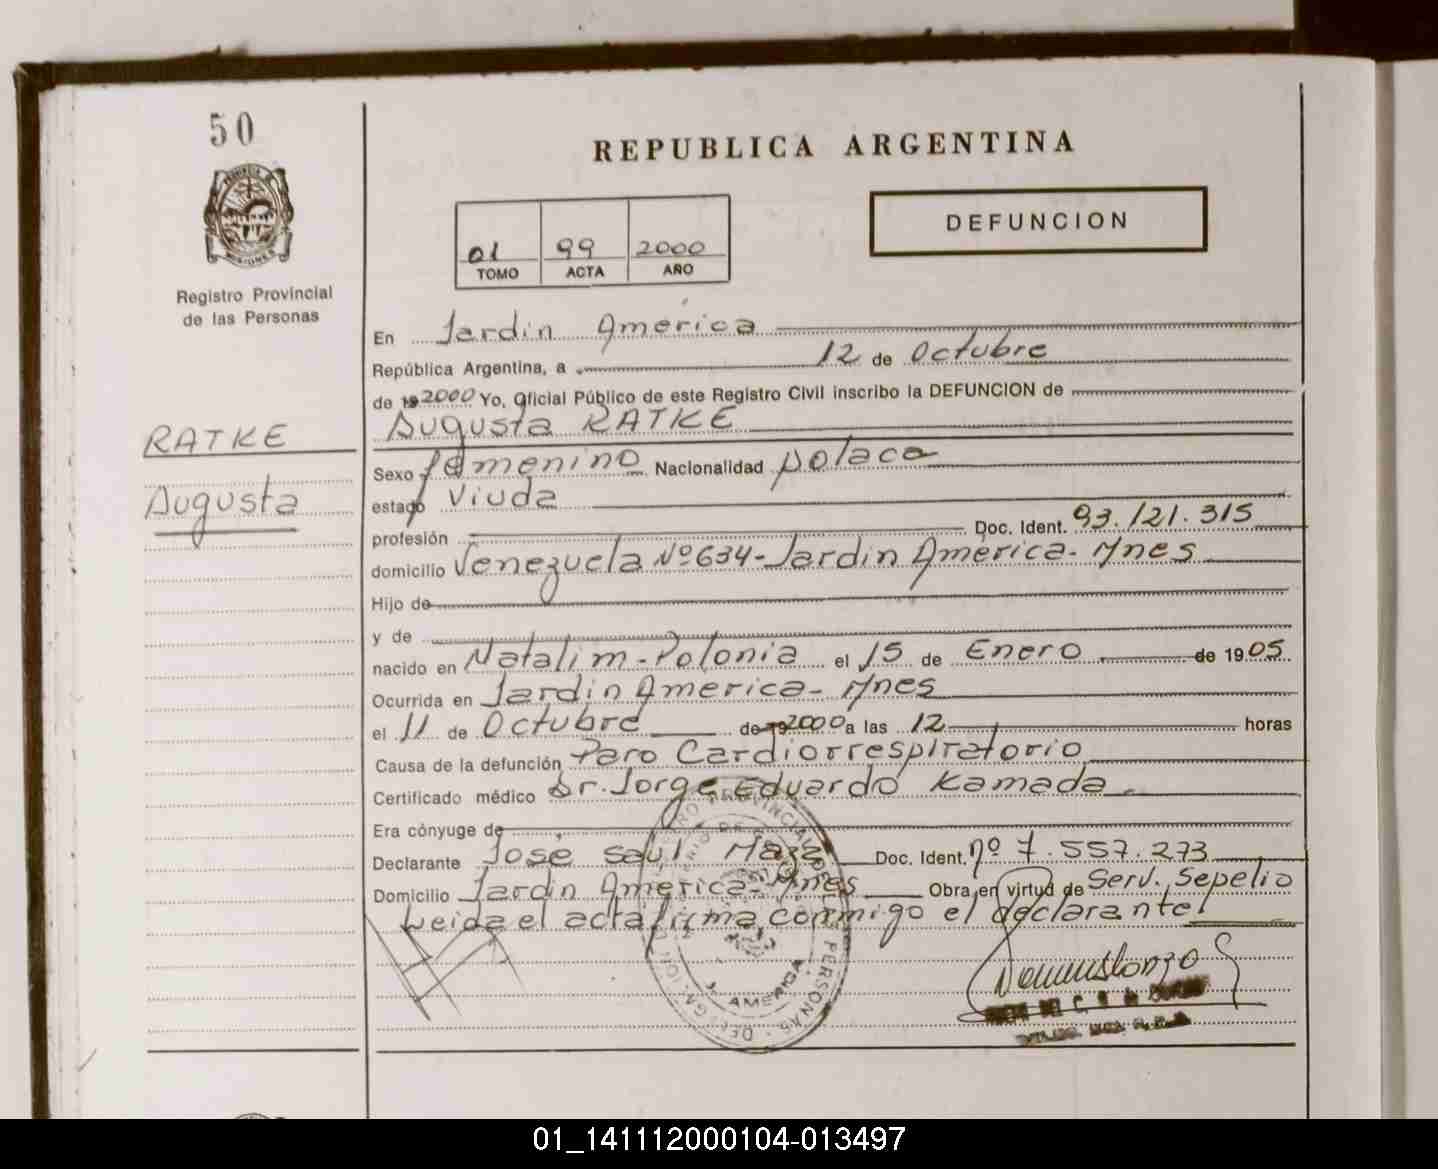 50
REPUBLICA ARGENTINA
DEFUNCION
01 99 2000
TOMO ACTA AÑO
Registro Provincial
de las Personas
En Jardin América
República Argentina, a 12 de Octubre
de 19 2000 Yo, Oficial Público de este Registro Civil inscribo la DEFUNCION de
RATKE
Augusta RATKE
Sexo femenino Nacionalidad polaca
Augusta
estado Viuda
profesión Doc. Ident. 93.121.315
domicilio Venezuela Nº 634 - Jardin America - Mnes
Hijo de
y de
nacido en Natalim - Polonia el 15 de Enero de 1905
Ocurrida en Jardin America - Mnes
el 11 de Octubre de 19 2000 a las 12 horas
Causa de la defunción Paro Cardiorrespiratorio
Certificado médico Dr. Jorge Eduardo Kamada.
Era cónyuge de
Declarante José Saúl Doc. Ident. nº 7.557.273
Domicilio Jardin America - Mnes Obra en virtud de Serv. Sepelio
Leida el acta firma conmigo el declarante.
J. AMERICA
01_141112000104-013497